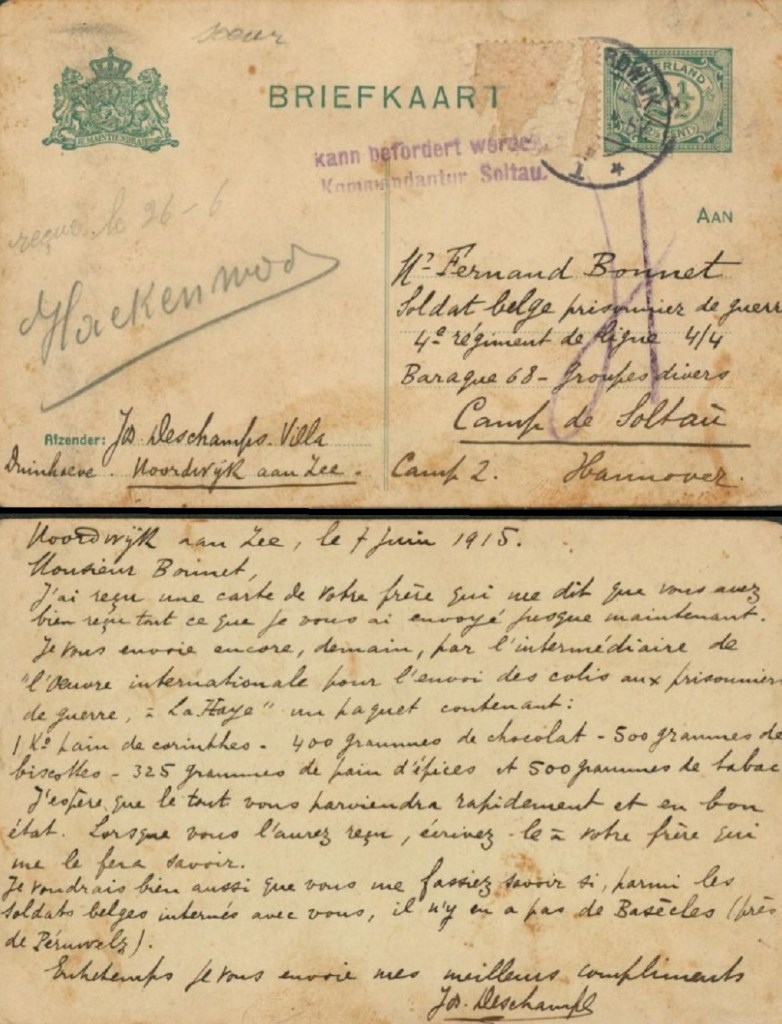 soeur
BRIEFKAART
JE MAINTIENDRAI
NEDERLAND
1/2
CENT
kann befördert werden
Kommandantur Soltau.
reçue le 26-6
AAN
Mr Fernand Bonnet
Soldat belge prisonnier de guerre
4e régiment de ligne 4/4
Baraque 68 - Groupes divers
Camp de Soltau
Camp 2. Hannover.
Afzender: Jos. Deschamps. Villa
Duinhoeve. Noordwijk aan Zee.
Noordwijk aan Zee, le 7 juin 1915.
Monsieur Bonnet,
J'ai reçu une carte de votre frère qui me dit que vous avez
bien reçu tout ce que je vous ai envoyé jusque maintenant.
Je vous envoie encore, demain, par l'intermédiaire de
"l'Oeuvre internationale pour l'envoi des colis aux prisonniers
de guerre, à La Haye" un paquet contenant:
1 Ko pain de corinthes - 400 grammes de chocolat - 500 grammes de
biscottes - 325 grammes de pain d'épices et 500 grammes de tabac
J'espère que le tout vous parviendra rapidement et en bon
état. Lorsque vous l'aurez reçu, écrivez-le à votre frère qui
me le fera savoir.
Je voudrais bien aussi que vous me fassiez savoir si, parmi les
soldats belges internés avec vous, il n'y en a pas de Basècles (près
de Péruwelz).
Entretemps je vous envoie mes meilleurs compliments
Jos. Deschamps